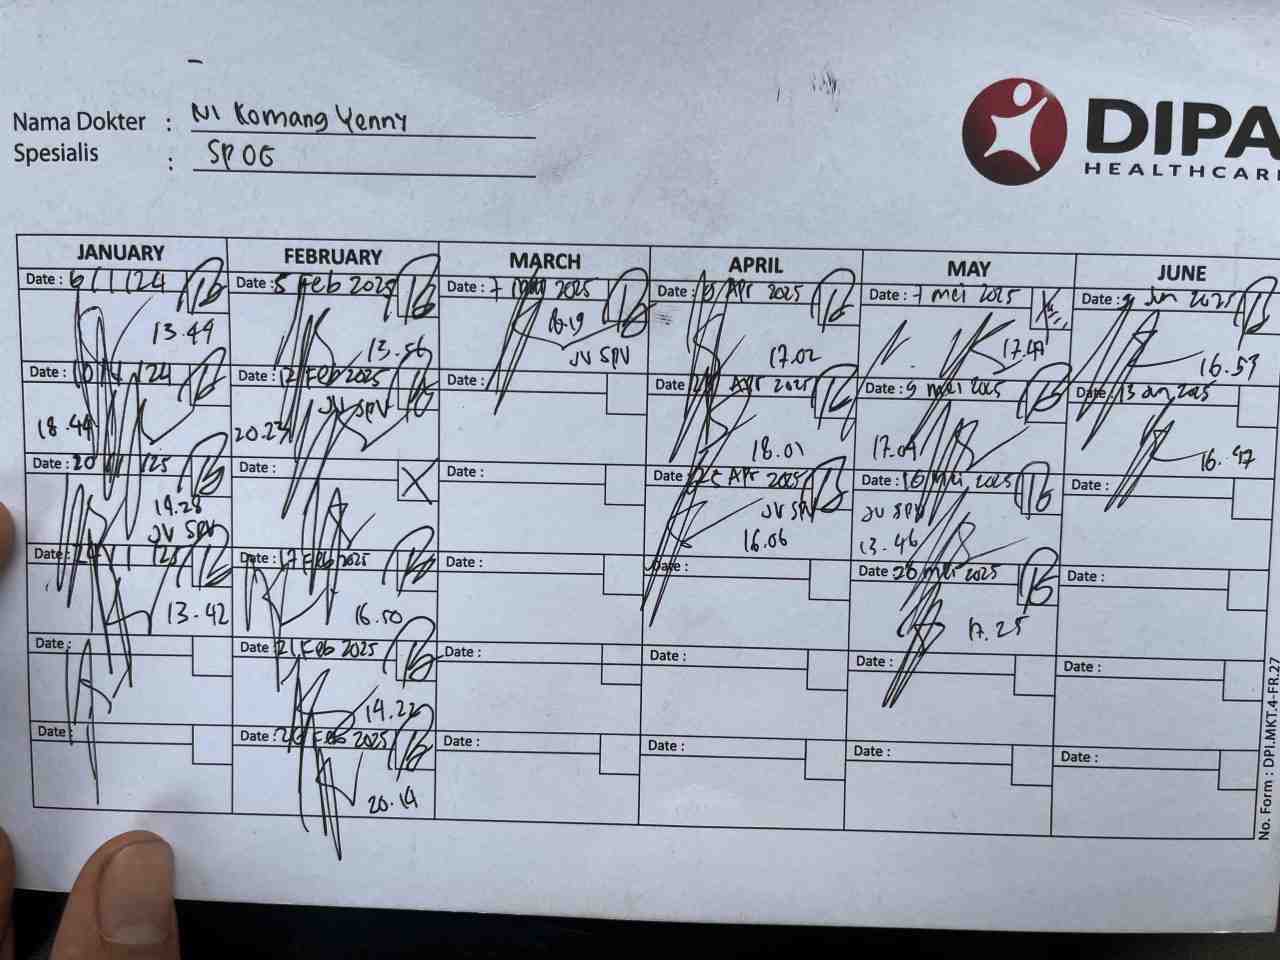 Nama Dokter : NI Komang Yenny
Spesialis : SP OG
DIPA
HEALTHCAR
JANUARY FEBRUARY MARCH APRIL MAY JUNE
Date : 6/1/24 Date : 5 Feb 2025 Date : 7 2025 Date : Apr 2025 Date : 7 mei 2025 Date : 9 Jun 2025
13.49 13.56 16.19 JV SPV 17.02 17.41 16.53
Date : 10 1/24 Date : 12 Feb 2025 Date : Date : Apr 2025 Date : 9 mei 2025 Date : 13 2025
18.44 20.23 JV SPV 18.01 17.04 16.47
Date : 20 /1/25 Date : Date : Date : Apr 2025 Date : 16 Mei 2025 Date :
14.28 JV SPV JV SPV 16.06 JV SPV 13.46
Date : 1 25 Date : 17 Feb 2025 Date : Date : Date : 26 mei 2025 Date :
13.42 16.50 17.25
Date : Date : 21 Feb 2025 Date : Date : Date : Date :
19.22
Date : Date : 26 Feb 2025 Date : Date : Date : Date :
20.19
No. Form : DPI.MKT.4-FR.27